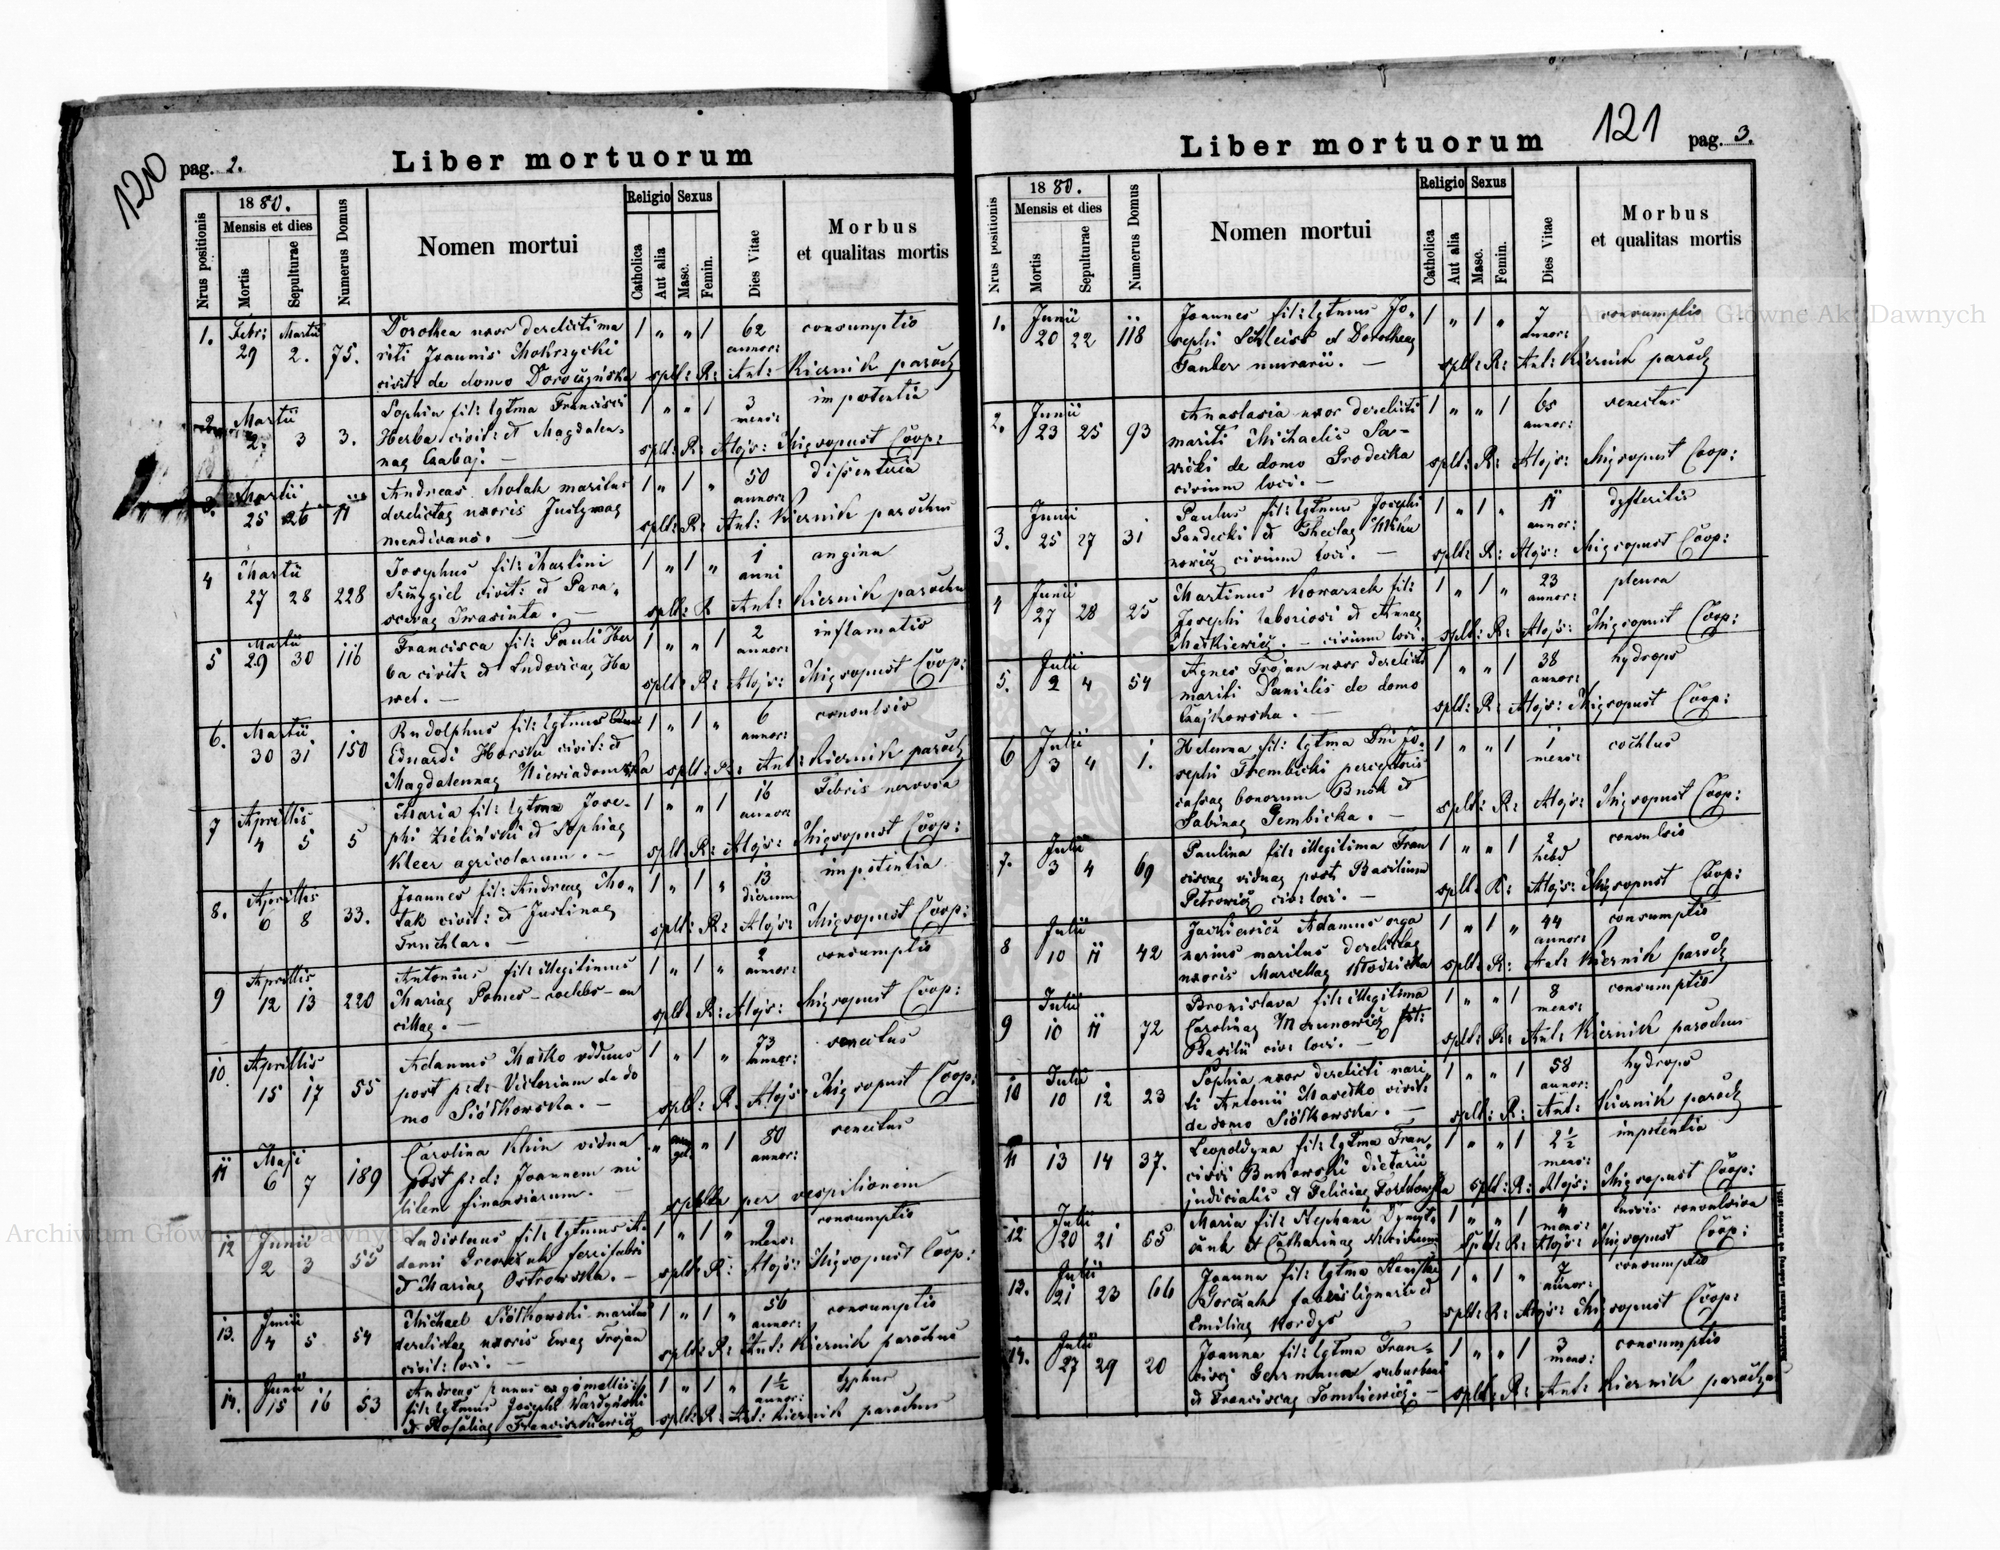 120
pag. 2.
Liber mortuorum
Nrus positionis
1880.
Mensis et dies
Mortis
Sepulturae
Numerus Domus
Nomen mortui
Religio
Catholica
Aut alia
Sexus
Masc.
Femin.
Dies Vitae
Morbus
et qualitas mortis
1. Febr: Martii Dorothea uxor derelicti ma 1 " " 1 62 consumptio
29 2. 75. riti Joannis Mokrzycki annor:
civit: de domo splt: R: Ant: Kiernik paroch
2. Martii Sophia fil: lgtma Francisci 1 " " 1 3 impotentia
2. 3 3. Herba civit: et Magdale- mens:
nae Czabaj. — splt: R: Alojs: Migsopust Coop:
3. Martii Andreas Molak maritus 1 " 1 " 50
25 26 11 derelictae uxoris Justynae annor:
mendicans. — splt: R: Ant: Kiernik parochus
4 Martii Josephus fil: Martini 1 " 1 " 1 angina
27 28 228 civit: et Para- anni
scevae Iwasinta. — splt: R Ant: Kiernik parochus
5 Martii Francisca fil: Pauli Her 1 " " 1 2 inflamatio
29 30 116 ba civit: et Ludovicae Ha annor:
wel. — splt: R: Alojs: Migsopust Coop:
6. Martii Rudolphus fil: lgtmus 1 " 1 " 6 convulsio
30 31 150 Eduardi civit: et annor:
Magdalennae Niewiadomska splt: R: Ant: Kiernik paroch
7 Aprillis Maria fil: lgtma Jose- 1 " " 1 16 Febris nervosa
4 5 5 phi Zieliński et Sophiae annor:
Kleer agricolarum. — splt: R: Alojs: Migsopust Coop:
8. Aprillis Joannes fil: Andreae Mo- 1 " 1 " 13 impotentia
6 8 33. lak civit: et Justinae dierum
Truchlar. — splt: R: Alojs: Migsopust Coop:
9 Aprillis Antonius fil: illegitimus 1 " 1 " 2 consumptio
12 13 220 Mariae Pomes - coelebs - an annor:
cillae. — splt: R: Alojs: Migsopust Coop:
10. Aprillis Adamus Maśko viduus 1 " 1 " 73 senectus
15 17 55 post p: d: Victoriam de do annor:
mo Siółkowska. — splt: R: Alojs: Migsopust Coop:
11 Maji Carolina Klein vidua " 1 80 senectus
6 7 189 post p: d: Joannem mi annor:
litem finansiarum. — splta per vespilionem
12 Junii Ladislaus fil: lgtmus A- 1 " 1 " 9 consumptio
2 3 55 dami fer: fabri mens:
et Mariae Ostrowska. — splt: R: Alojs: Migsopust Coop:
13. Junii Michael Siółkowski maritus 1 " 1 " 56 consumptio
4 5 54 derelictae uxoris Evae Trojan annor:
civit: loci. — splt: R: Ant: Kiernik parochus
14. Junii Andreas 1 " 1 " 1½ typhus
15 16 53 fil: lgtmus Josephi Wardyński annor:
et Rosaliae Franciszkiewicz splt: R: Ant: Kiernik parochus
121
pag. 3.
Liber mortuorum
Nrus positionis
1880.
Mensis et dies
Mortis
Sepulturae
Numerus Domus
Nomen mortui
Religio
Catholica
Aut alia
Sexus
Masc.
Femin.
Dies Vitae
Morbus
et qualitas mortis
1. Junii Joannes fil: lgtmus Jo- 1 " 1 " 7 consumptio
20 22 118 sephi Schleiss et Dorotheae annor:
Tauber murarii. — splt: R: Ant: Kiernik paroch
2. Junii Anastasia uxor derelicti 1 " " 1 65 senectus
23 25 93 mariti Michaelis Sa- annor:
wicki de domo Grodecka splt: R: Alojs: Migsopust Coop:
civium loci. —
3. Junii Paulus fil: lgtmus Josephi 1 " 1 " 11 dyfteritis
25 27 31 Sandecki et Theclae annor:
civium loci. — splt: R: Alojs: Migsopust Coop:
4 Junii Martinus Kowarzek fil: 1 " 1 " 23 pleura
27 28 25 Josephi laboriosi et Annae annor:
Maśkiewicz. — civium loci. splt: R: Alojs: Migsopust Coop:
5. Julii Agnes Trojan uxor derelicti 1 " " 1 38 hydrops
2 4 54 mariti Danielis de domo annor:
Czajkowska. — splt: R: Alojs: Migsopust Coop:
6 Julii Helenna fil: lgtma Dni Jo- 1 " " 1 1 coctus
3 4 1. sephi Trembicki perceptoris mens:
cassae bonorum Busk et
Sabinae Gembicka. — splt: R: Alojs: Migsopust Coop:
7. Julii Paulina fil: illegitima Fran 1 " " 1 2 convulsio
3 4 69 ciscae viduae post Basilium hebd
Petrowicz civ: loci. — splt: R: Alojs: Migsopust Coop:
8 Julii Jackiewicz Adamus orga 1 " 1 " 44 consumptio
10 11 42 rarius maritus derelictae annor:
uxoris Marcellae Kłodnicka splt: R: Ant: Kiernik paroch
9 Julii Bronislava fil: illegitima 1 " " 1 8 consumptio
10 11 72 Carolinae fil: mens:
Basilii civ: loci. — splt: R: Ant: Kiernik parochus
10 Julii Sophia uxor derelicti mari 1 " " 1 58 hydrops
10 12 23 ti Antonii civit: annor:
de domo Siółkowska. — splt: R: Ant: Kiernik paroch
11 13 14 37. Leopoldyna fil: lgtma Fran- 1 " " 1 2½ impotentia
cisci Bukowski dietarii mens:
judicialis et Feliciae splt: R: Alojs: Migsopust Coop:
12 Julii Maria fil: Stephani 1 " " 1 4 tussis convulsiva
20 21 65 et Catharinae mens:
splt: R: Alojs: Migsopust Coop:
13. Julii Joanna fil: lgtma 1 " 1 " 7 consumptio
21 23 66 fabri lignarii et annor:
Emiliae Kordys splt: R: Alojs: Migsopust Coop:
14. Julii Joanna fil: lgtma Fran- 1 " " 1 3 consumptio
27 29 20 cisci Gehrmann suburbani mens:
et Franciscae Tomkiewicz. — splt: R: Ant: Kiernik paroch
Archiwum Główne Akt Dawnych
Archiwum Główne Akt Dawnych